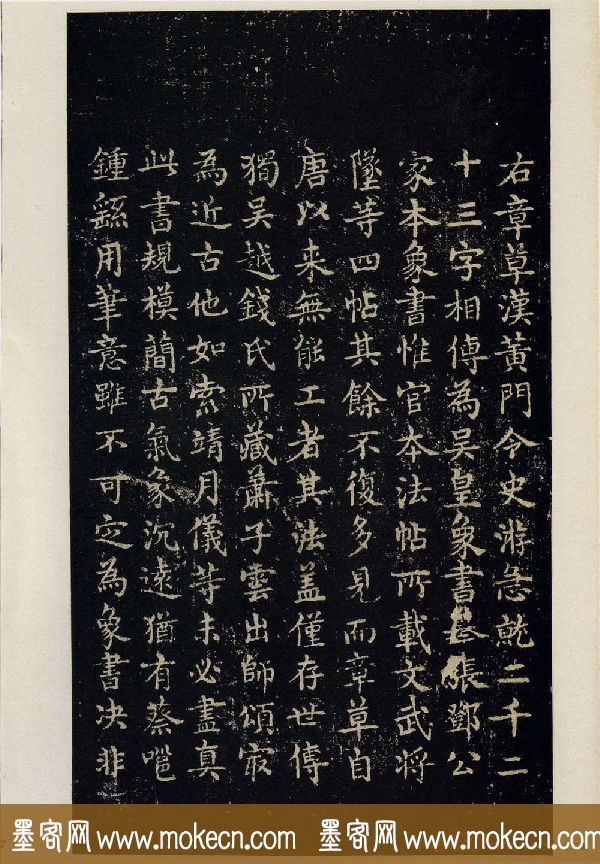 右章草漢黃門令史游急就二千二
十三字相傳為吳皇象書 張鄧公
家本象書惟官本法帖所載文武將
墜等四帖其餘不復多見而章草自
唐以來無能工者其法盖僅存世傳
獨吳越錢氏所藏蕭子雲出師頌冣
為近古他如索靖月儀等未必盡真
此書規模蕳古氣象沉遠猶有蔡邕
鍾繇用筆意雖不可定為象書决非
墨客网 www.mokecn.com 墨客网 www.mokecn.com